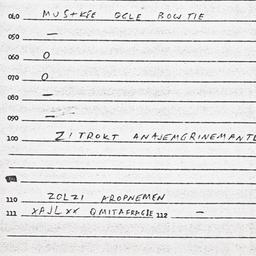 040 MUSTKEE OGLE BOWTIE
050 —
060 O
070 O
080 —
090 —
100 ZITROKT ANAJEMGRINEMANTL
110 ZOLZI AROPNEMEN
111 XAJLXX QMITAFRAGIE 112 —